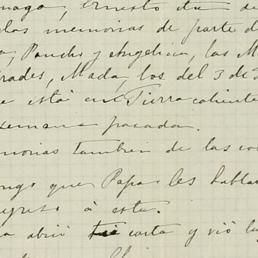 Ernesto
las memorias de parte d
Pancho y Angelica, las M
rades, Mada, los del 3 de
e está en Tierra caliente
semana pasada.
morias tambien de las co
ngo que Papa les habla
egreso á esta.
a abrió tu carta y vió l